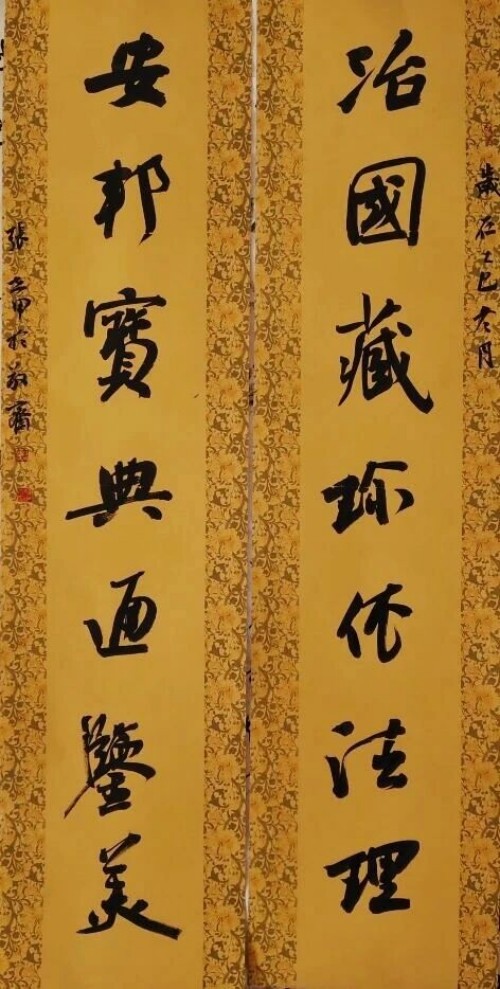 歲在乙巳月
治國藏珍依法理
安邦寶典通鑒美
張甲於齋